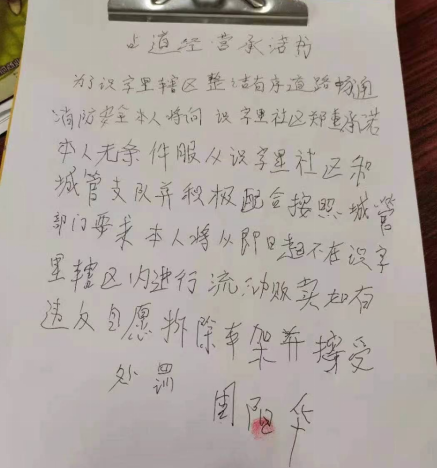 占道经营承洁书
为了识字里辖区整洁有序道路畅通
消防安全本人将向识字里社区郑重承诺
本人无条件服从识字里社区和
城管支队并积极配合按照城管
部门要求本人将从即日起不在识字
里辖区内进行流动贩卖如有
违反自愿拆除车架并接受
处罚
周阳华